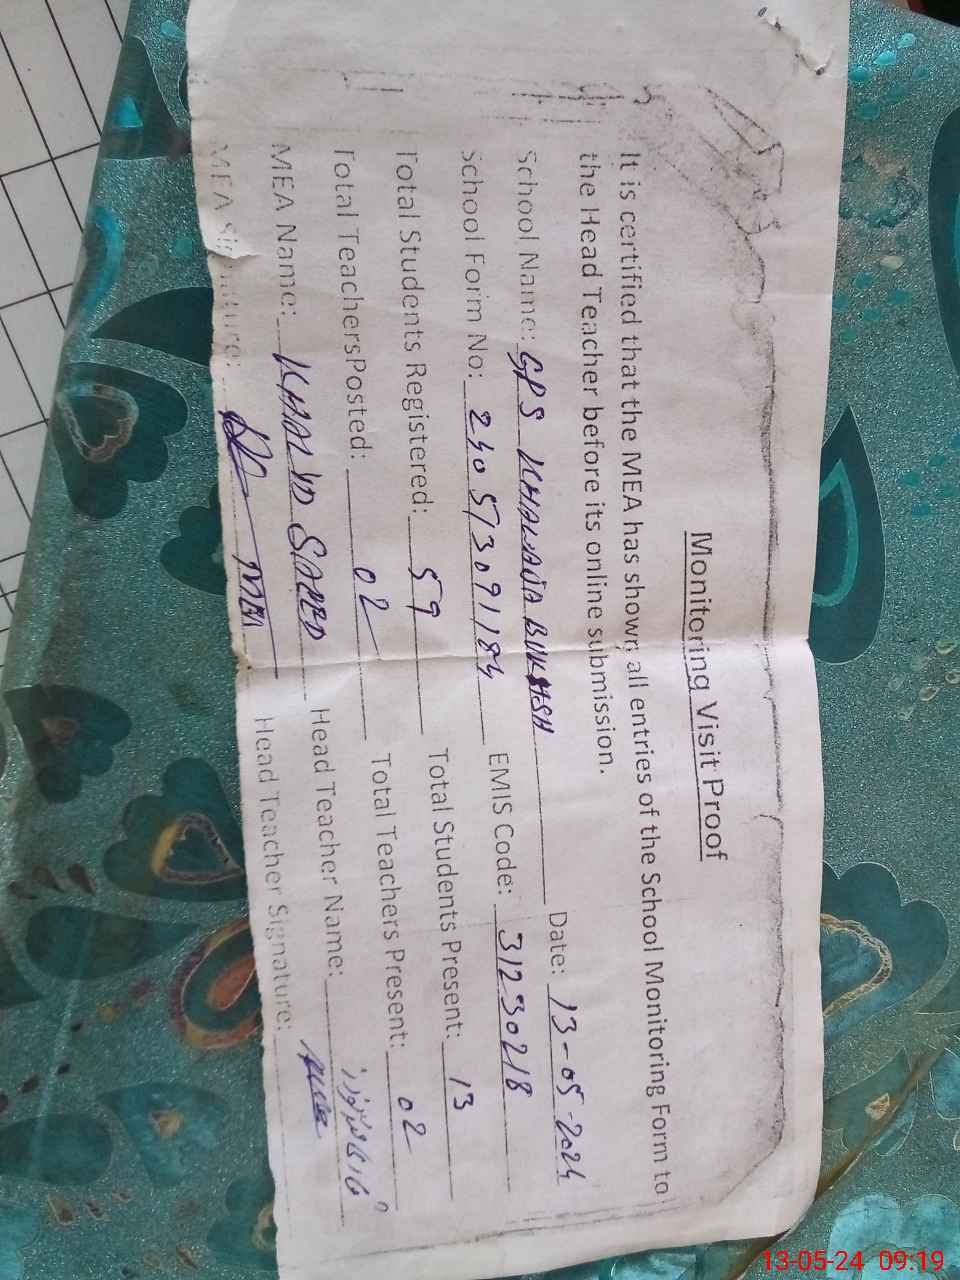 Monitoring Visit Proof
It is certified that the MEA has shown all entries of the School Monitoring Form to
the Head Teacher before its online submission.
School Name: GPS KHAWAJA BUKHSH Date: 13-05-2024
School Form No: 240573091184 EMIS Code: 31230218
Total Students Registered: 59 Total Students Present: 13
Total TeachersPosted: 02 Total Teachers Present: 02
MEA Name: KHALID SAEED Head Teacher Name:
MEA Signature: MEA Head Teacher Signature:
13-05-24 09:19